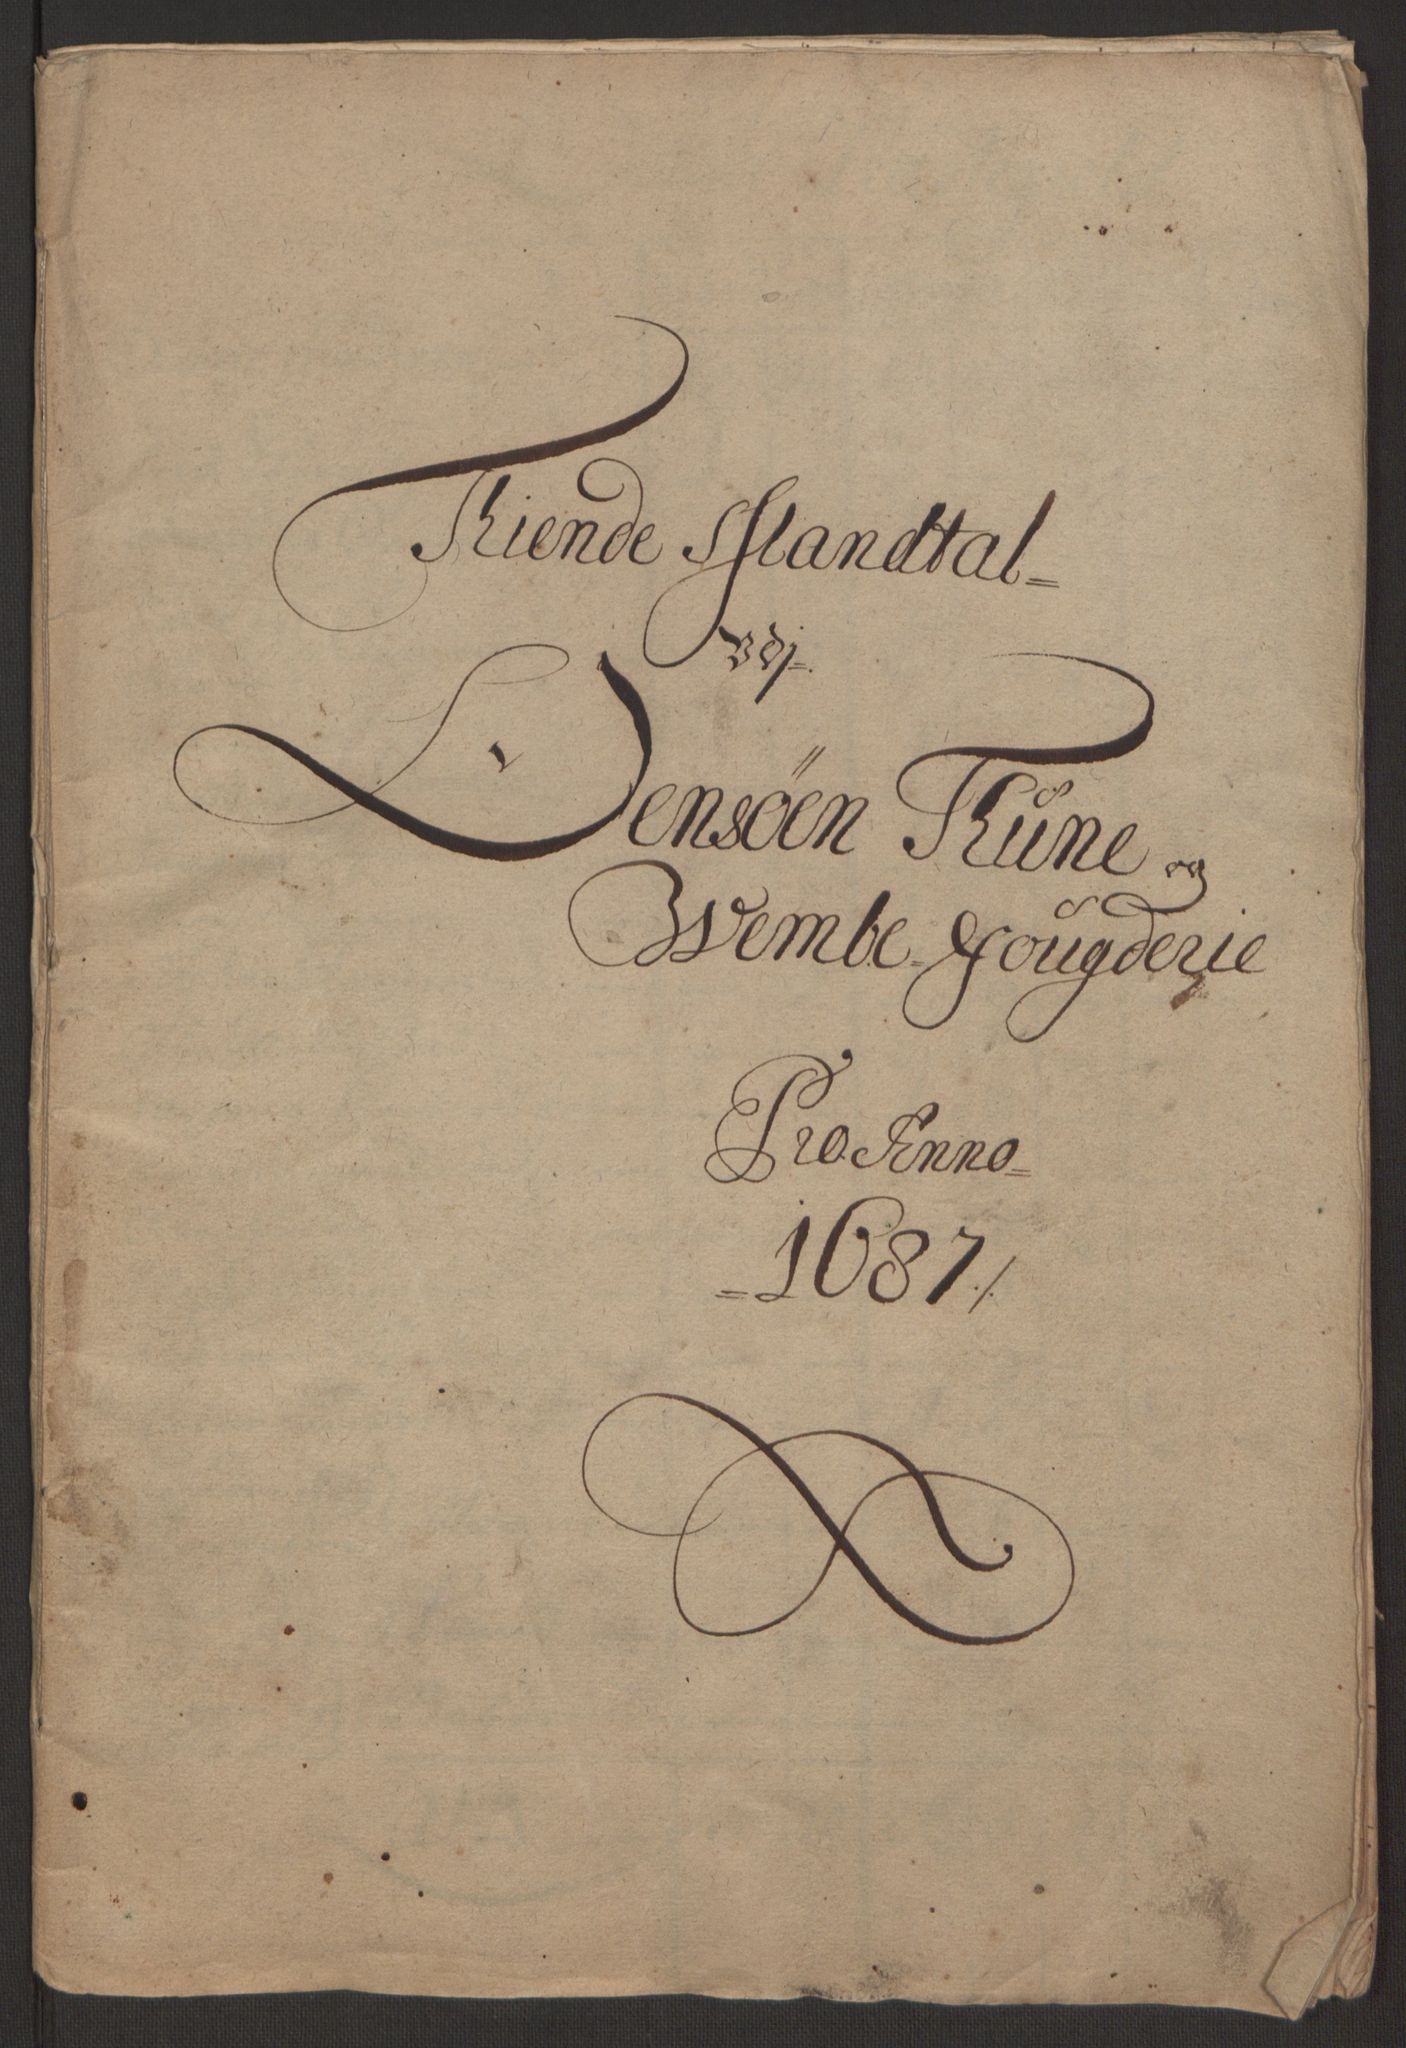 Tiende Mandtal
udj
Jensøen Tüne og
Wembe Fougderie
Pro Anno
1687